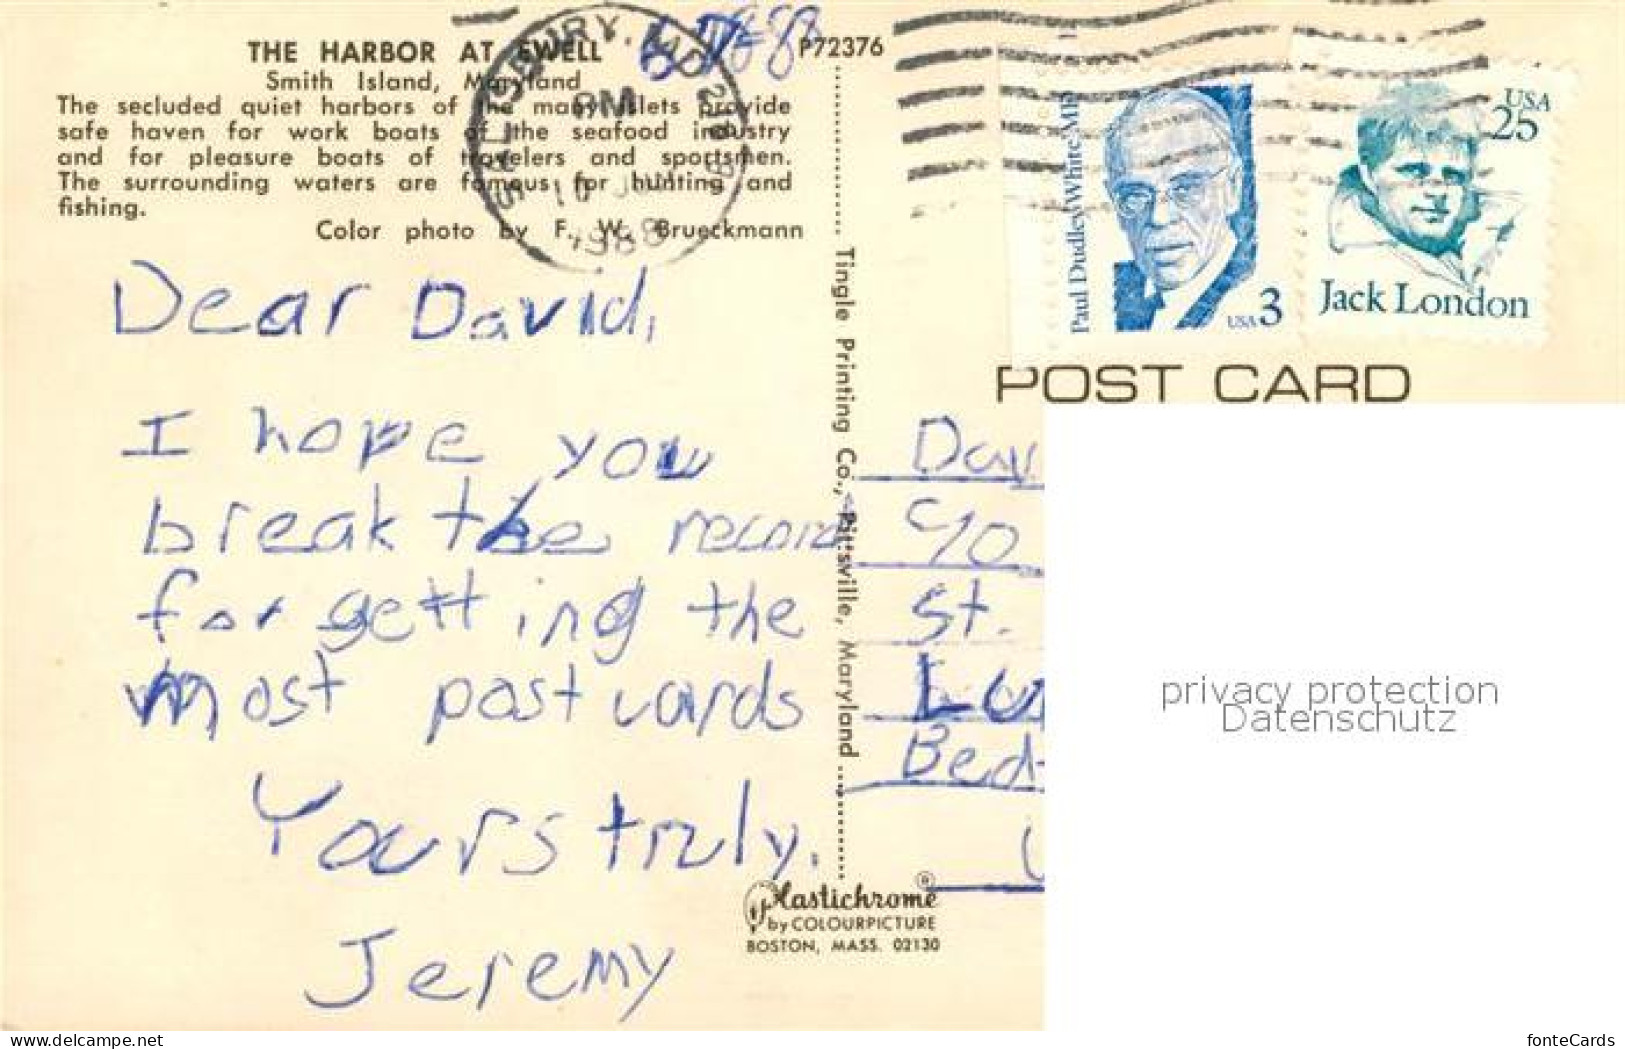 THE HARBOR AT EWELL
Smith Island, Maryland
The secluded quiet harbors of the many islets provide
safe haven for work boats of the seafood industry
and for pleasure boats of travelers and sportsmen.
The surrounding waters are famous for hunting and
fishing.
Color photo by F. W. Brueckmann
P72376
SALISBURY, MD
PM
1988
Dear David,
I hope you
break the record
for getting the
most post cards
Yours truly,
Jeremy
Tingle Printing Co., Pittsville, Maryland
Plastichrome ®
by COLOURPICTURE
BOSTON, MASS. 02130
Paul Dudley White MD
USA 3
USA
25
Jack London
POST CARD
Dav
c/o
St.
Bed
privacy protection
Datenschutz
www.delcampe.net
fonteCards